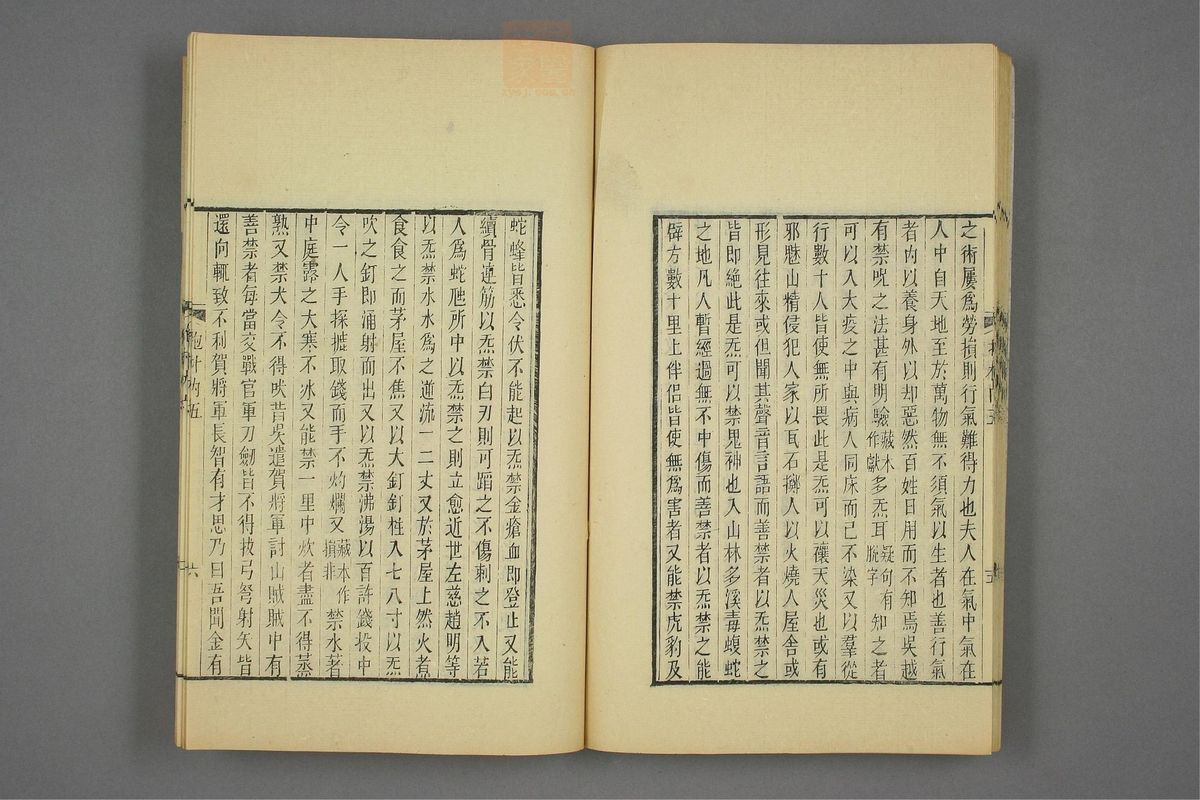 之術屢爲勞損則行氣難得力也夫人在氣中氣在
人中自天地至於萬物無不須氣以生者也善行氣
者内以養身外以却惡然百姓日用而不知焉吳越
有禁呪之法甚有明驗藏本作獻多炁耳疑句有脫字知之者
可以入大疫之中與病人同床而已不染又以羣從
行數十人皆使無所畏此是炁可以禳天災也或有
邪魅山精侵犯人家以瓦石擲人以火燒人屋舍或
形見往來或但聞其聲音言語而善禁者以炁禁之
皆即絕此是炁可以禁鬼神也入山林多溪毒蝮蛇
之地凡人暫經過無不中傷而善禁者以炁禁之能
辟方數十里上伴侶皆使無爲害者又能禁虎豹及
蛇蜂皆悉令伏不能起以炁禁金瘡血即登止又能
續骨連筋以炁禁白刃則可蹈之不傷刺之不入若
人爲蛇虺所中以炁禁之則立愈近世左慈趙明等
以炁禁水水爲之逆流一二丈又於茅屋上然火煮
食食之而茅屋不焦又以大釘釘柱入七八寸以炁
吹之釘即涌射而出又以炁禁沸湯以百許錢投中
令一人手探摝取錢而手不灼爛又藏本作損非禁水著
中庭露之大寒不冰又能禁一里中炊者盡不得蒸
熟又禁犬令不得吠昔吳遣賀將軍討山賊賊中有
善禁者每當交戰官軍刀劒皆不得拔弓弩射矢皆
還向輒致不利賀將軍長智有才思乃曰吾聞金有
六